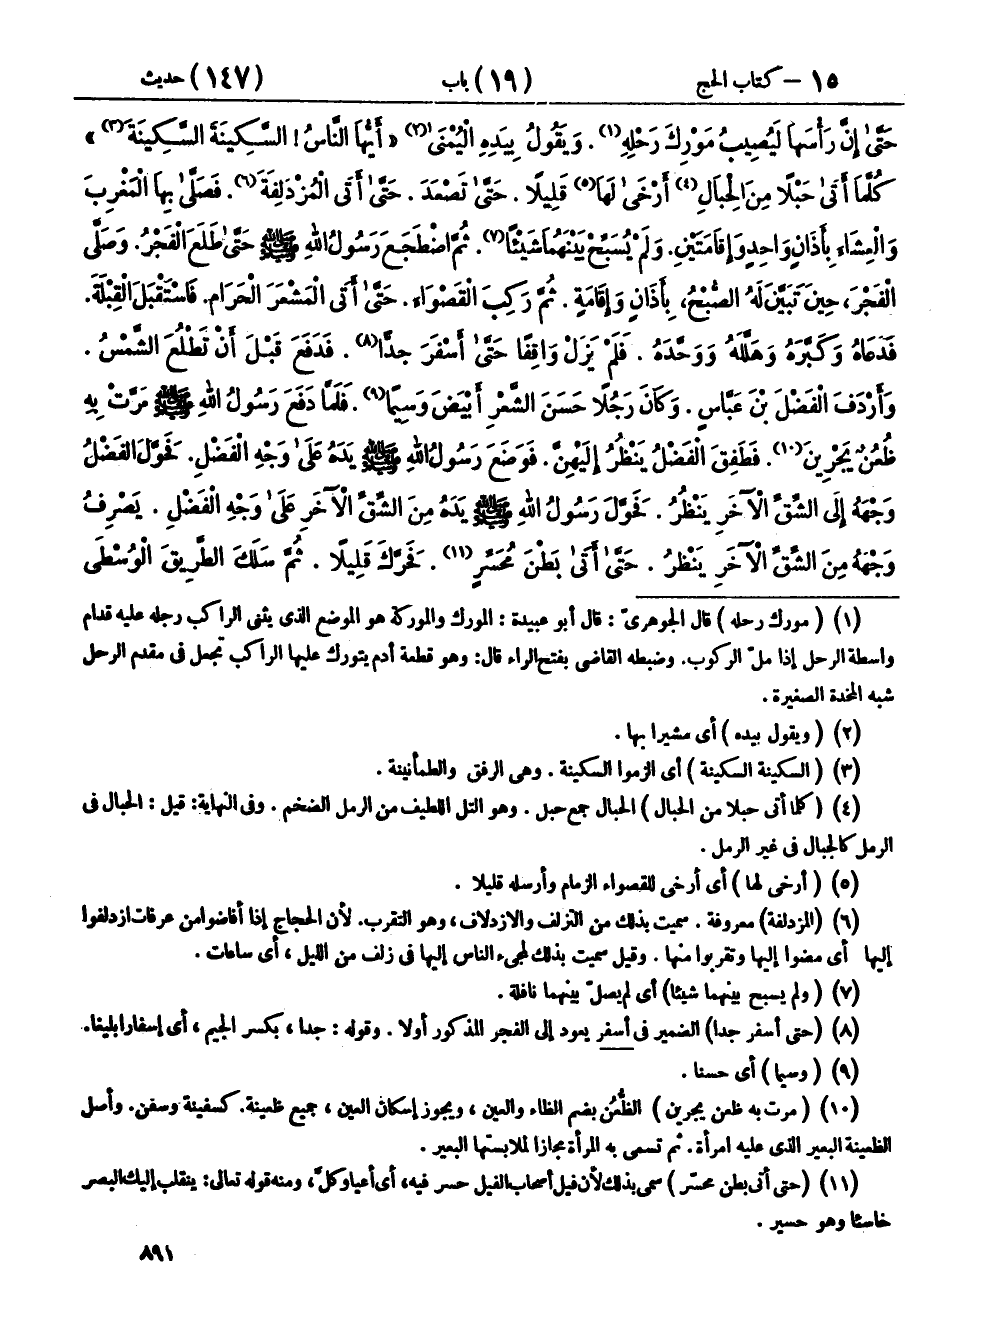 ١٥ – كتاب الحج (١٩) باب (١٤٧) حديث
حَتَّىٰ إِنَّ رَأْسَهَا لَيُصِيبُ مَوْرِكَ رَحْلِهِ(١) . وَيَقُولُ بِيَدِهِ الْيُمْنَىٰ(٢) « أَيُّهَا النَّاسُ ! السَّكِينَةَ السَّكِينَةَ(٣) »
كُلَّمَا أَتَىٰ حَبْلًا مِنَ الْحِبَالِ(٤) أَرْخَىٰ لَهَا(٥) قَلِيلًا . حَتَّىٰ تَصْعَدَ . حَتَّىٰ أَتَى الْمُزْدَلِفَةَ(٦). فَصَلَّىٰ بِهَا الْمَغْرِبَ
وَالْعِشَاءَ بِأَذَانٍ وَاحِدٍ وَإِقَامَتَيْنِ. وَلَمْ يُسَبِّحْ بَيْنَهُمَا شَيْئًا(٧). ثُمَّ اضْطَجَعَ رَسُولُ اللهِ ﷺ حَتَّىٰ طَلَعَ الْفَجْرُ. وَصَلَّى
الْفَجْرَ، حِينَ تَبَيَّنَ لَهُ الصُّبْحُ، بِأَذَانٍ وَإِقَامَةٍ . ثُمَّ رَكِبَ الْقَصْوَاءَ . حَتَّىٰ أَتَى الْمَشْعَرَ الْحَرَامَ. فَاسْتَقْبَلَ الْقِبْلَةَ.
فَدَعَاهُ وَكَبَّرَهُ وَهَلَّلَهُ وَوَحَّدَهُ . فَلَمْ يَزَلْ وَاقِفًا حَتَّىٰ أَسْفَرَ جِدًّا(٨) . فَدَفَعَ قَبْلَ أَنْ تَطْلُعَ الشَّمْسُ .
وَأَرْدَفَ الْفَضْلَ بْنَ عَبَّاسٍ . وَكَانَ رَجُلًا حَسَنَ الشَّعْرِ أَبْيَضَ وَسِيمًا(٩) . فَلَمَّا دَفَعَ رَسُولُ اللهِ ﷺ مَرَّتْ بِهِ
ظُعُنٌ يَجْرِينَ(١٠) . فَطَفِقَ الْفَضْلُ يَنْظُرُ إِلَيْهِنَّ . فَوَضَعَ رَسُولُ اللهِ ﷺ يَدَهُ عَلَىٰ وَجْهِ الْفَضْلِ . فَحَوَّلَ الْفَضْلُ
وَجْهَهُ إِلَى الشِّقِّ الْآخَرِ يَنْظُرُ . فَحَوَّلَ رَسُولُ اللهِ ﷺ يَدَهُ مِنَ الشِّقِّ الْآخَرِ عَلَىٰ وَجْهِ الْفَضْلِ . يَصْرِفُ
وَجْهَهُ مِنَ الشِّقِّ الْآخَرِ يَنْظُرُ . حَتَّىٰ أَتَىٰ بَطْنَ مُحَسِّرٍ(١١) . فَحَرَّكَ قَلِيلًا . ثُمَّ سَلَكَ الطَّرِيقَ الْوُسْطَى
(١) ( مورك رحله ) قال الجوهرىّ : قال أبو عبيدة : المورك والموركة هو الموضع الذى يثنى الراكب رجله عليه قدام
واسطة الرحل إذا ملّ الركوب. وضبطه القاضى بفتح الراء قال: وهو قطعة أدم يتورك عليها الراكب تجعل فى مقدم الرحل
شبه المخدة الصغيرة .
(٢) ( ويقول بيده ) أى مشيرا بها .
(٣) ( السكينة السكينة ) أى الزموا السكينة . وهى الرفق والطمأنينة .
(٤) ( كلما أتى حبلا من الحبال ) الحبال جمع حبل . وهو التل اللطيف من الرمل الضخم . وفى النهاية: قيل : الحبال فى
الرمل كالجبال فى غير الرمل .
(٥) ( أرخى لها ) أى أرخى للقصواء الزمام وأرسله قليلا .
(٦) (المزدلفة) معروفة . سميت بذلك من التزلف والازدلاف، وهو التقرب. لأن الحجاج إذا أفاضوا من عرفات ازدلفوا
إليها أى مضوا إليها وتقربوا منها . وقيل سميت بذلك لمجىء الناس إليها فى زلف من الليل ، أى ساعات .
(٧) ( ولم يسبح بينهما شيئا) أى لم يصلّ بينهما نافلة .
(٨) (حتى أسفر جدا) الضمير فى أسفر يعود إلى الفجر المذكور أولا . وقوله : جدا ، بكسر الجيم ، أى إسفارا بليغا.
(٩) ( وسيما ) أى حسنا .
(١٠) ( مرت به ظعن يجرين ) الظُّعُنُ بضم الظاء والعين ، ويجوز إسكان العين ، جمع ظعينة. كسفينة وسفن. وأصل
الظعينة البعير الذى عليه امرأة. ثم تسمى به المرأة مجازا لملابستها البعير .
(١١) (حتى أتى بطن محسّر ) سمى بذلك لأن فيل أصحاب الفيل حسر فيه، أى أعيا وكلّ، ومنه قوله تعالى: ينقلب إليك البصر
خاسئا وهو حسير .
٨٩١